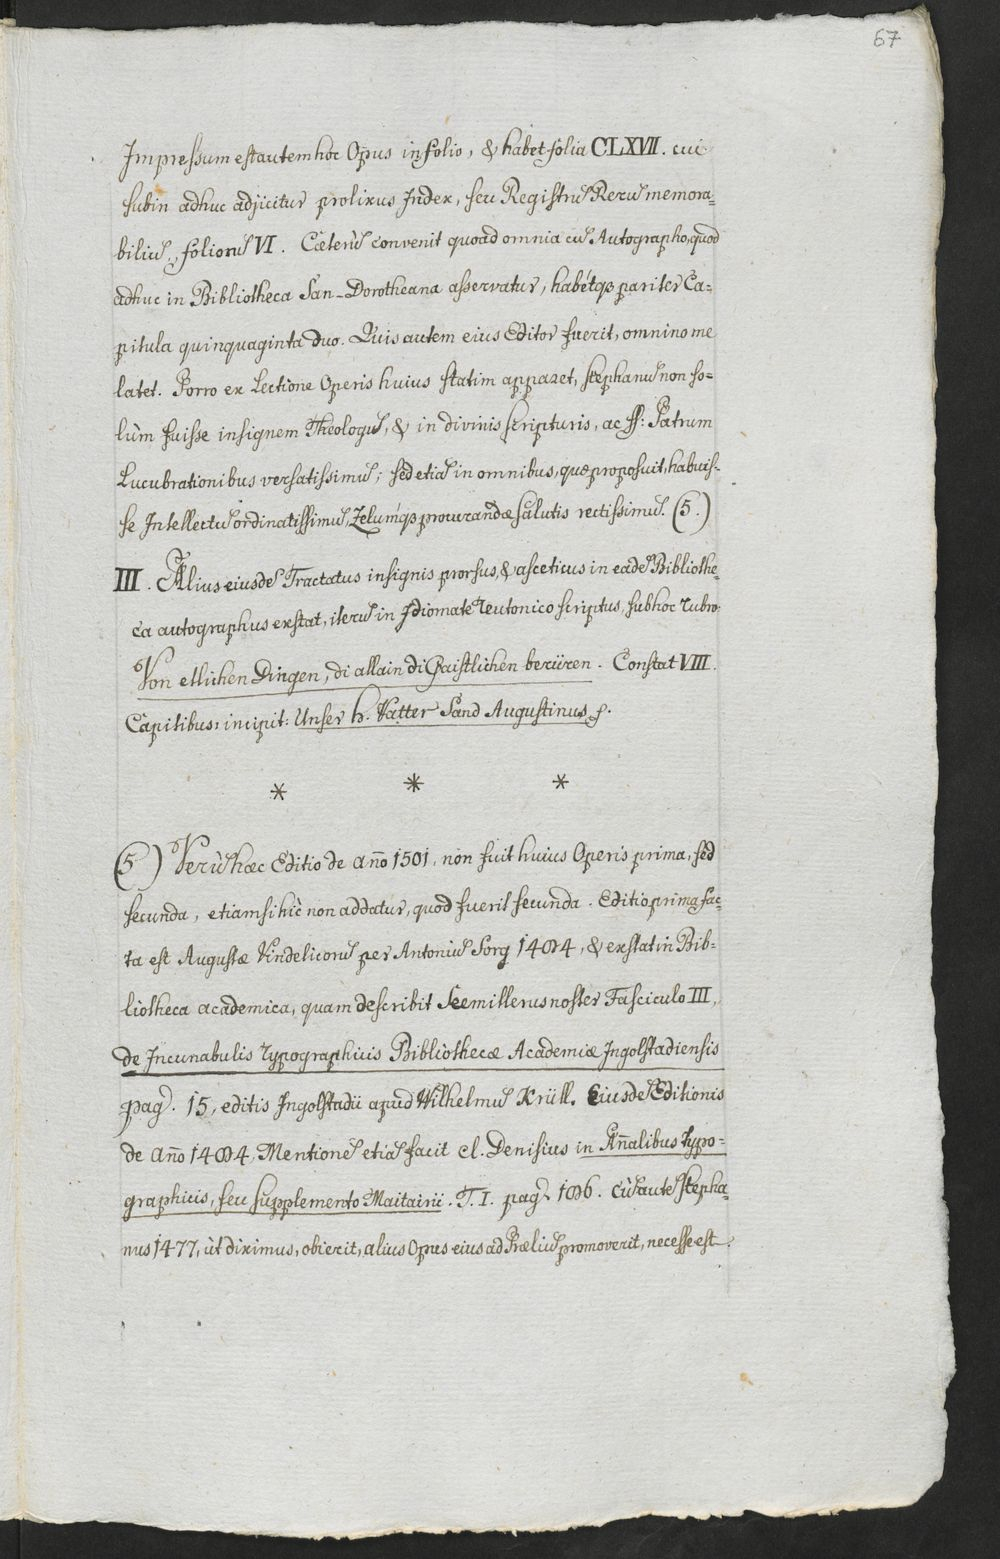 67
Impressum est autem hoc Opus in folio, & habet folia CLXVII. cui
subin adhuc adjicitur prolixus Index, seu Registrũ Rerũ memora=
biliũ, foliorũ VI. Cæterũ convenit quoad omnia cũ Autographo, quod
adhuc in Bibliotheca San-Dorotheana asservatur, habetqꝫ pariter Ca=
pitula quinquaginta duo. Quis autem eius Editor fuerit, omnino me
latet. Porro ex Lectione Operis huius statim apparet, Stephanũ non so=
lùm fuisse insignem Theologũ, & in divinis scripturis, ac ss: Patrum
Lucubrationibus versatissimũ; sed etiã in omnibus, quæ proposuit, habuis=
se Intellectũ ordinatissimũ, Zelumqꝫ procurandæ salutis rectissimũ. (5.)
III. Alius eiusdẽ Tractatus insignis prorsus, & asceticus in eadẽ Bibliothe=
ca autographus exstat, iterũ in Idiomate Teutonico scriptus, sub hoc rubro:
Von etlichen Dingen, di allain di Gaistlichen berüren. Constat VIII.
Capitibus: incipit: Unser h. Vatter Sand Augustinus.
* * *
(5) Verũ hæc Editio de año 1501, non fuit huius Operis prima, sed
secunda, etiamsi hìc non addatur, quod fuerit secunda. Editio prima fac=
ta est Augustæ Vindelicorũ per Antoniũ Sorg 1484, & exstat in Bib=
liotheca academica, quam describit Seemillerus noster Fasciculo III,
de Incunabulis Typographicis Bibliothecæ Academiæ Ingolstadiensis
pag. 15, editis Ingolstadii apud Wilhelmũ Krüll. Eiusdẽ Editionis
de año 1484, Mentionẽ etiã facit cl. Denisius in Añalibus Typo=
graphicis, seu supplemento Maitairii. T. I. pag. 186. Cũ autẽ Stepha=
nus 1477, ut diximus, obierit, alius Opus eius ad Præliũ promoverit, necesse est.